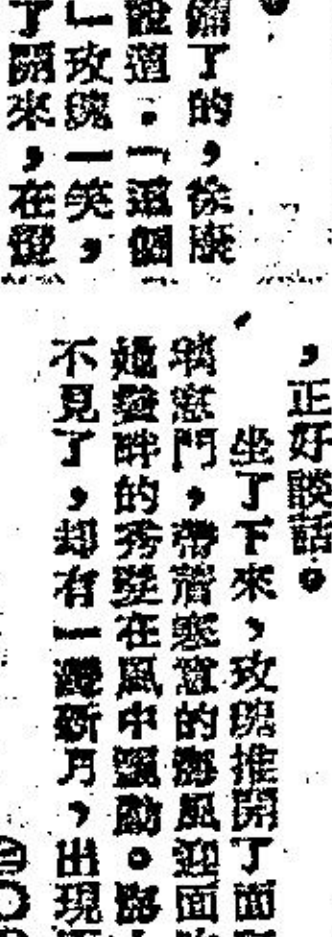 備了的，徐康
說道：「這個
」玫瑰一笑，
了開來，在從
，正好談話。
坐了下來，玫瑰推開了面
璃窓門，帶着寒意的海風迎面
她鬢畔的秀髮在風中飄動。
不見了，却有一彎新月，出現